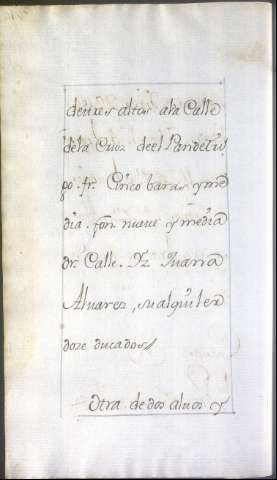 de tres altos a la Calle
de la Cruz deel
po. fr. Cinco baras y me
dia. fon. nueue y media
dr. Calle. Dz Juana
Aluarez, su alquiler
doze ducados
Otra de dos altos y